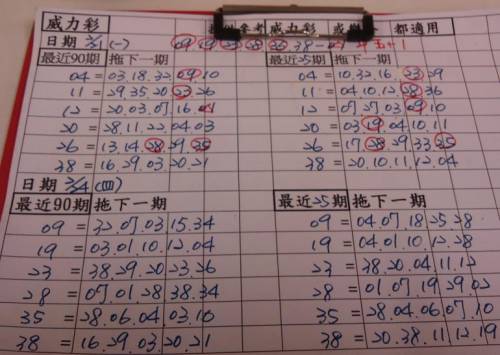 威力彩 參考 威力彩 或 都適用
日期 2/1 (一) 09 19 23 28 35 38
最近90期 拖下一期 最近25期 拖下一期
04 = 03.18.32.09.10 04 = 10.32.16.23.29
11 = 29.35.20.23.26 11 = 04.10.12.28.36
12 = 20.03.07.16.21 12 = 07.27.03.09.10
20 = 28.11.22.04.03 20 = 03.19.04.10.11
26 = 13.14.28.29.35 26 = 17.28.29.33.35
38 = 16.29.03.20.21 38 = 20.10.11.12.04
日期 2/4 (四)
最近90期 拖下一期 最近25期 拖下一期
09 = 32.07.03.15.34 09 = 04.07.18.25.28
19 = 03.01.10.12.04 19 = 04.01.10.12.28
23 = 38.29.20.23.26 23 = 38.20.04.11.12
28 = 07.01.28.38.34 28 = 01.07.19.29.02
35 = 28.06.04.03.10 35 = 28.04.06.07.10
38 = 16.29.03.20.21 38 = 20.38.11.12.19